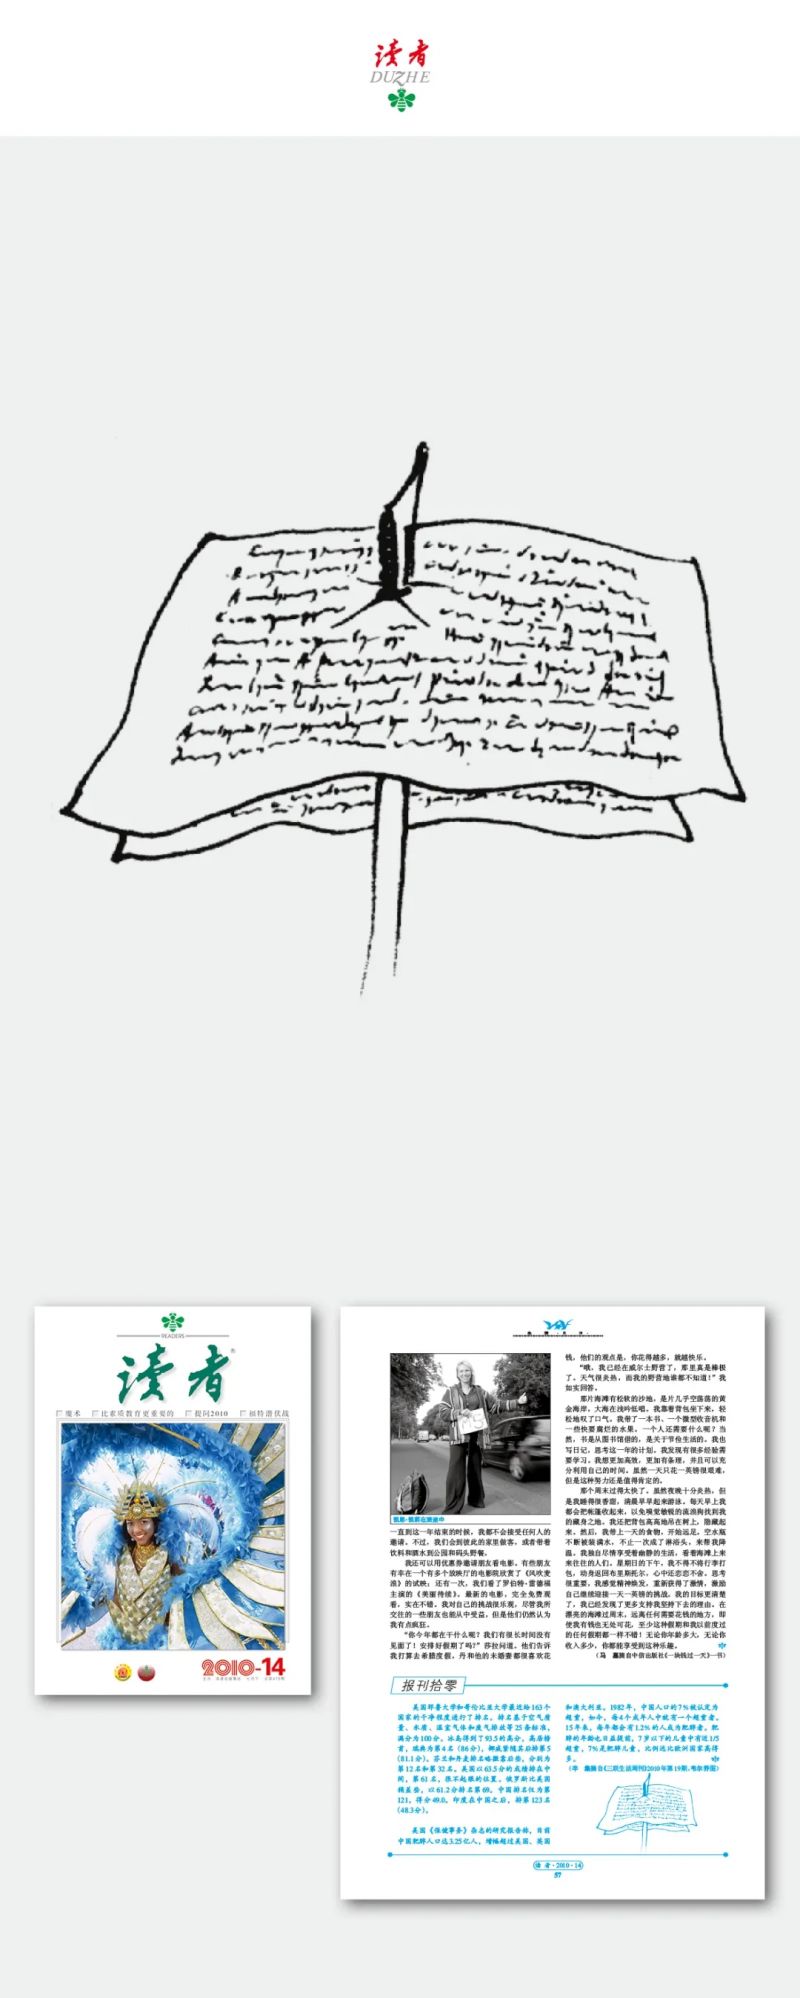 读者
DUZHE
READERS
读者
魔术
比素质教育更重要的
提问2010
福特潜伏战
2010-14
一直到这一年结束的时候，我都不会接受任何人的
邀请。不过，我们会到彼此的家里做客，或者带着
饮料和酒水到公园和码头野餐。
我还可以用优惠券邀请朋友看电影。有些朋友
有幸在一个有多个放映厅的电影院欣赏了《风吹麦
浪》的试映；还有一次，我们看了罗伯特·雷德福
主演的《美丽待续》。最新的电影，完全免费观
看，实在不错。我对自己的挑战很乐观，尽管我所
交往的一些朋友也能从中受益，但是他们仍然认为
我有点疯狂。
“你今年都在干什么呢？我们有很长时间没有
见面了！安排好假期了吗？”莎拉问道。他们告诉
我打算去希腊度假，丹和他的未婚妻都很喜欢花
钱，他们的观点是，你花得越多，就越快乐。
“哦，我已经在威尔士野营了，那里真是棒极
了。天气很炎热，而我的野营地谁都不知道！”我
如实回答。
那片海滩有松软的沙地，是片几乎空荡荡的黄
金海岸，大海在浅吟低唱。我靠着背包坐下来，轻
松地叹了口气。我带了一本书、一个微型收音机和
一些快要腐烂的水果。一个人还需要什么呢？当
然，书是从图书馆借的，是关于节俭生活的。我也
写日记，思考这一年的计划。我发现有很多经验需
要学习。我想更加高效，更加有条理，并且可以充
分利用自己的时间。虽然一天只花一英镑很艰难，
但是这种努力还是值得肯定的。
那个周末过得太快了。虽然夜晚十分炎热，但
是我睡得很香甜，清晨早早起来游泳。每天早上我
都会把帐篷收起来，以免嗅觉敏锐的流浪狗找到我
的藏身之地。我还把背包高高地吊在树上，隐藏起
来。然后，我带上一天的食物，开始远足，空水瓶
不断被装满水，不止一次成了淋浴头，来帮我降
温。我独自尽情享受着幽静的生活，看着海滩上来
来往往的人们。星期日的下午，我不得不将行李打
包，动身返回布里斯托尔，心中还恋恋不舍。思考
很重要，我感觉精神焕发，重新获得了激情，激励
自己继续迎接一天一英镑的挑战。我的目标更清楚
了，我已经发现了更多支持我坚持下去的理由。在
漂亮的海滩过周末，远离任何需要花钱的地方，即
使我有钱也无处可花，至少这种假期和我以前度过
的任何假期都一样不错！无论你年龄多大，无论你
收入多少，你都能享受到这种乐趣。
报刊拾零
美国耶鲁大学和哥伦比亚大学最近给163个
国家的干净程度进行了排名。排名基于空气质
量、水质、温室气体和废气排放等25条标准，
满分为100分。冰岛得到了93.5的高分，高居榜
首，瑞典为第4名（86分），挪威紧随其后排第5
（81.1分），芬兰和丹麦排名略微靠后些，分别为
第12名和第32名。美国以63.5分的成绩排在中
间，第61名，很不起眼的位置。俄罗斯比美国
稍差些，以61.2分排名第69。中国排名仅为第
121，得分49.0。印度在中国之后，排第123名
（48.3分）。
美国《保健事务》杂志的研究报告称，目前
中国肥胖人口达3.25亿人，增幅超过美国、英国
和澳大利亚。1982年，中国人口的7%被认定为
超重，如今，每4个成年人中就有一个超重者。
15年来，每年都会有1.2%的人成为肥胖者。肥
胖的年龄也日益提前，7岁以下的儿童中有近1/5
超重，7%是肥胖儿童，比例远比欧洲国家高得
多。
读者·2010·14
57